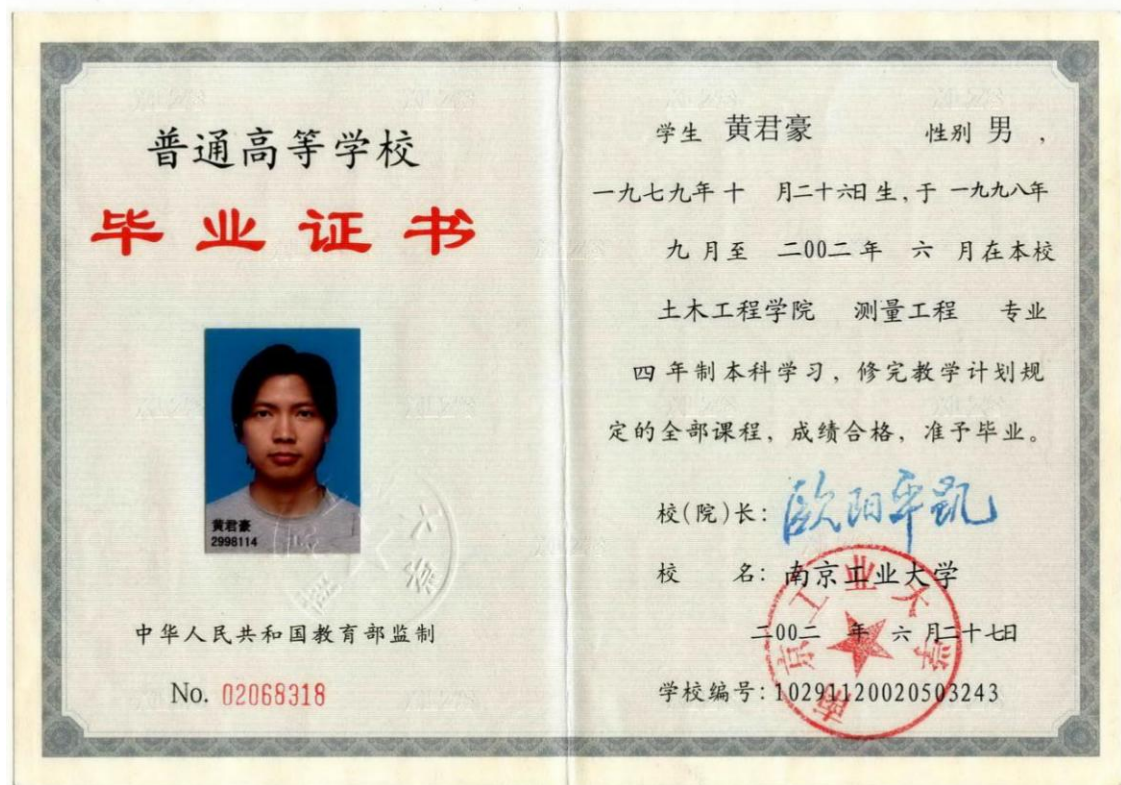 普通高等学校
毕业证书
黄君豪
2998114
中华人民共和国教育部监制
No. 02068318
学生 黄君豪 性别 男 ，
一九七九年 十 月二十六日 生，于 一九九八年
九 月至 二00二 年 六 月在本校
土木工程学院 测量工程 专业
四 年制本科学习，修完教学计划规
定的全部课程，成绩合格，准予毕业。
校(院)长：欧阳平凯
校 名：南京工业大学
二00二 年 六 月二十七日
学校编号：10291120020503243
南京工业大学